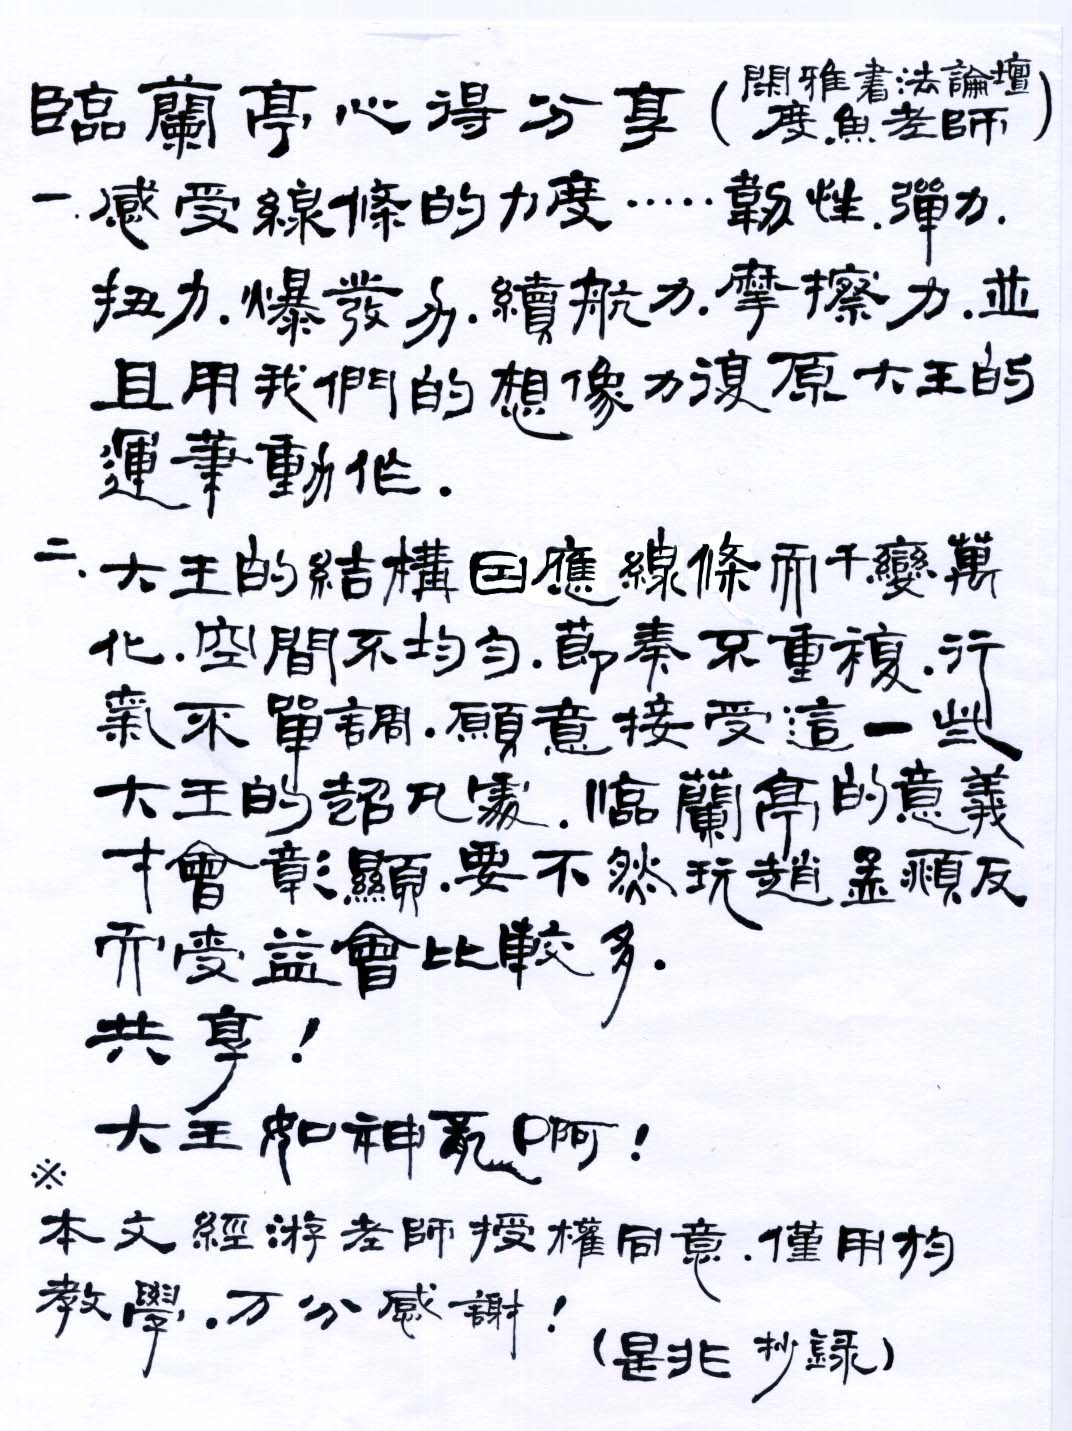 臨蘭亭心得分享(閑雅書法論壇
度魚老師)
一.感受線條的力度……韌性.彈力.
扭力.爆發力.續航力.摩擦力.並
且用我們的想像力復原大王的
運筆動作.
二、大王的結構回應線條而千變萬
化.空間不均勻.節奏不重複.行
氣不單調.願意接受這一些
大王的超凡處.臨蘭亭的意義
才會彰顯.要不然玩趙孟頫反
而受益會比較多.
共享!
大王如神 啊!
※
本文經游老師授權同意.僅用於
教學.万分感謝!
(是非抄錄)